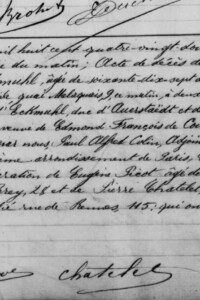 il huit cent quatre-vingt dou
du matin; Acte de décès de
muhl, âgé de soixante dix sept a
le quai Malaquais 9, ce matin, à deux
d'Eckmuhl, duc d'Auerstaëdt et d
veuve de Edmond François de Cou
par nous, Paul Alfred Colin, Adjoin
me arrondissement de Paris,
ration de Eugène Picot âgé de
28 et de Pierre Chatelet,
rue de Rennes 115. qui on
Chatelet